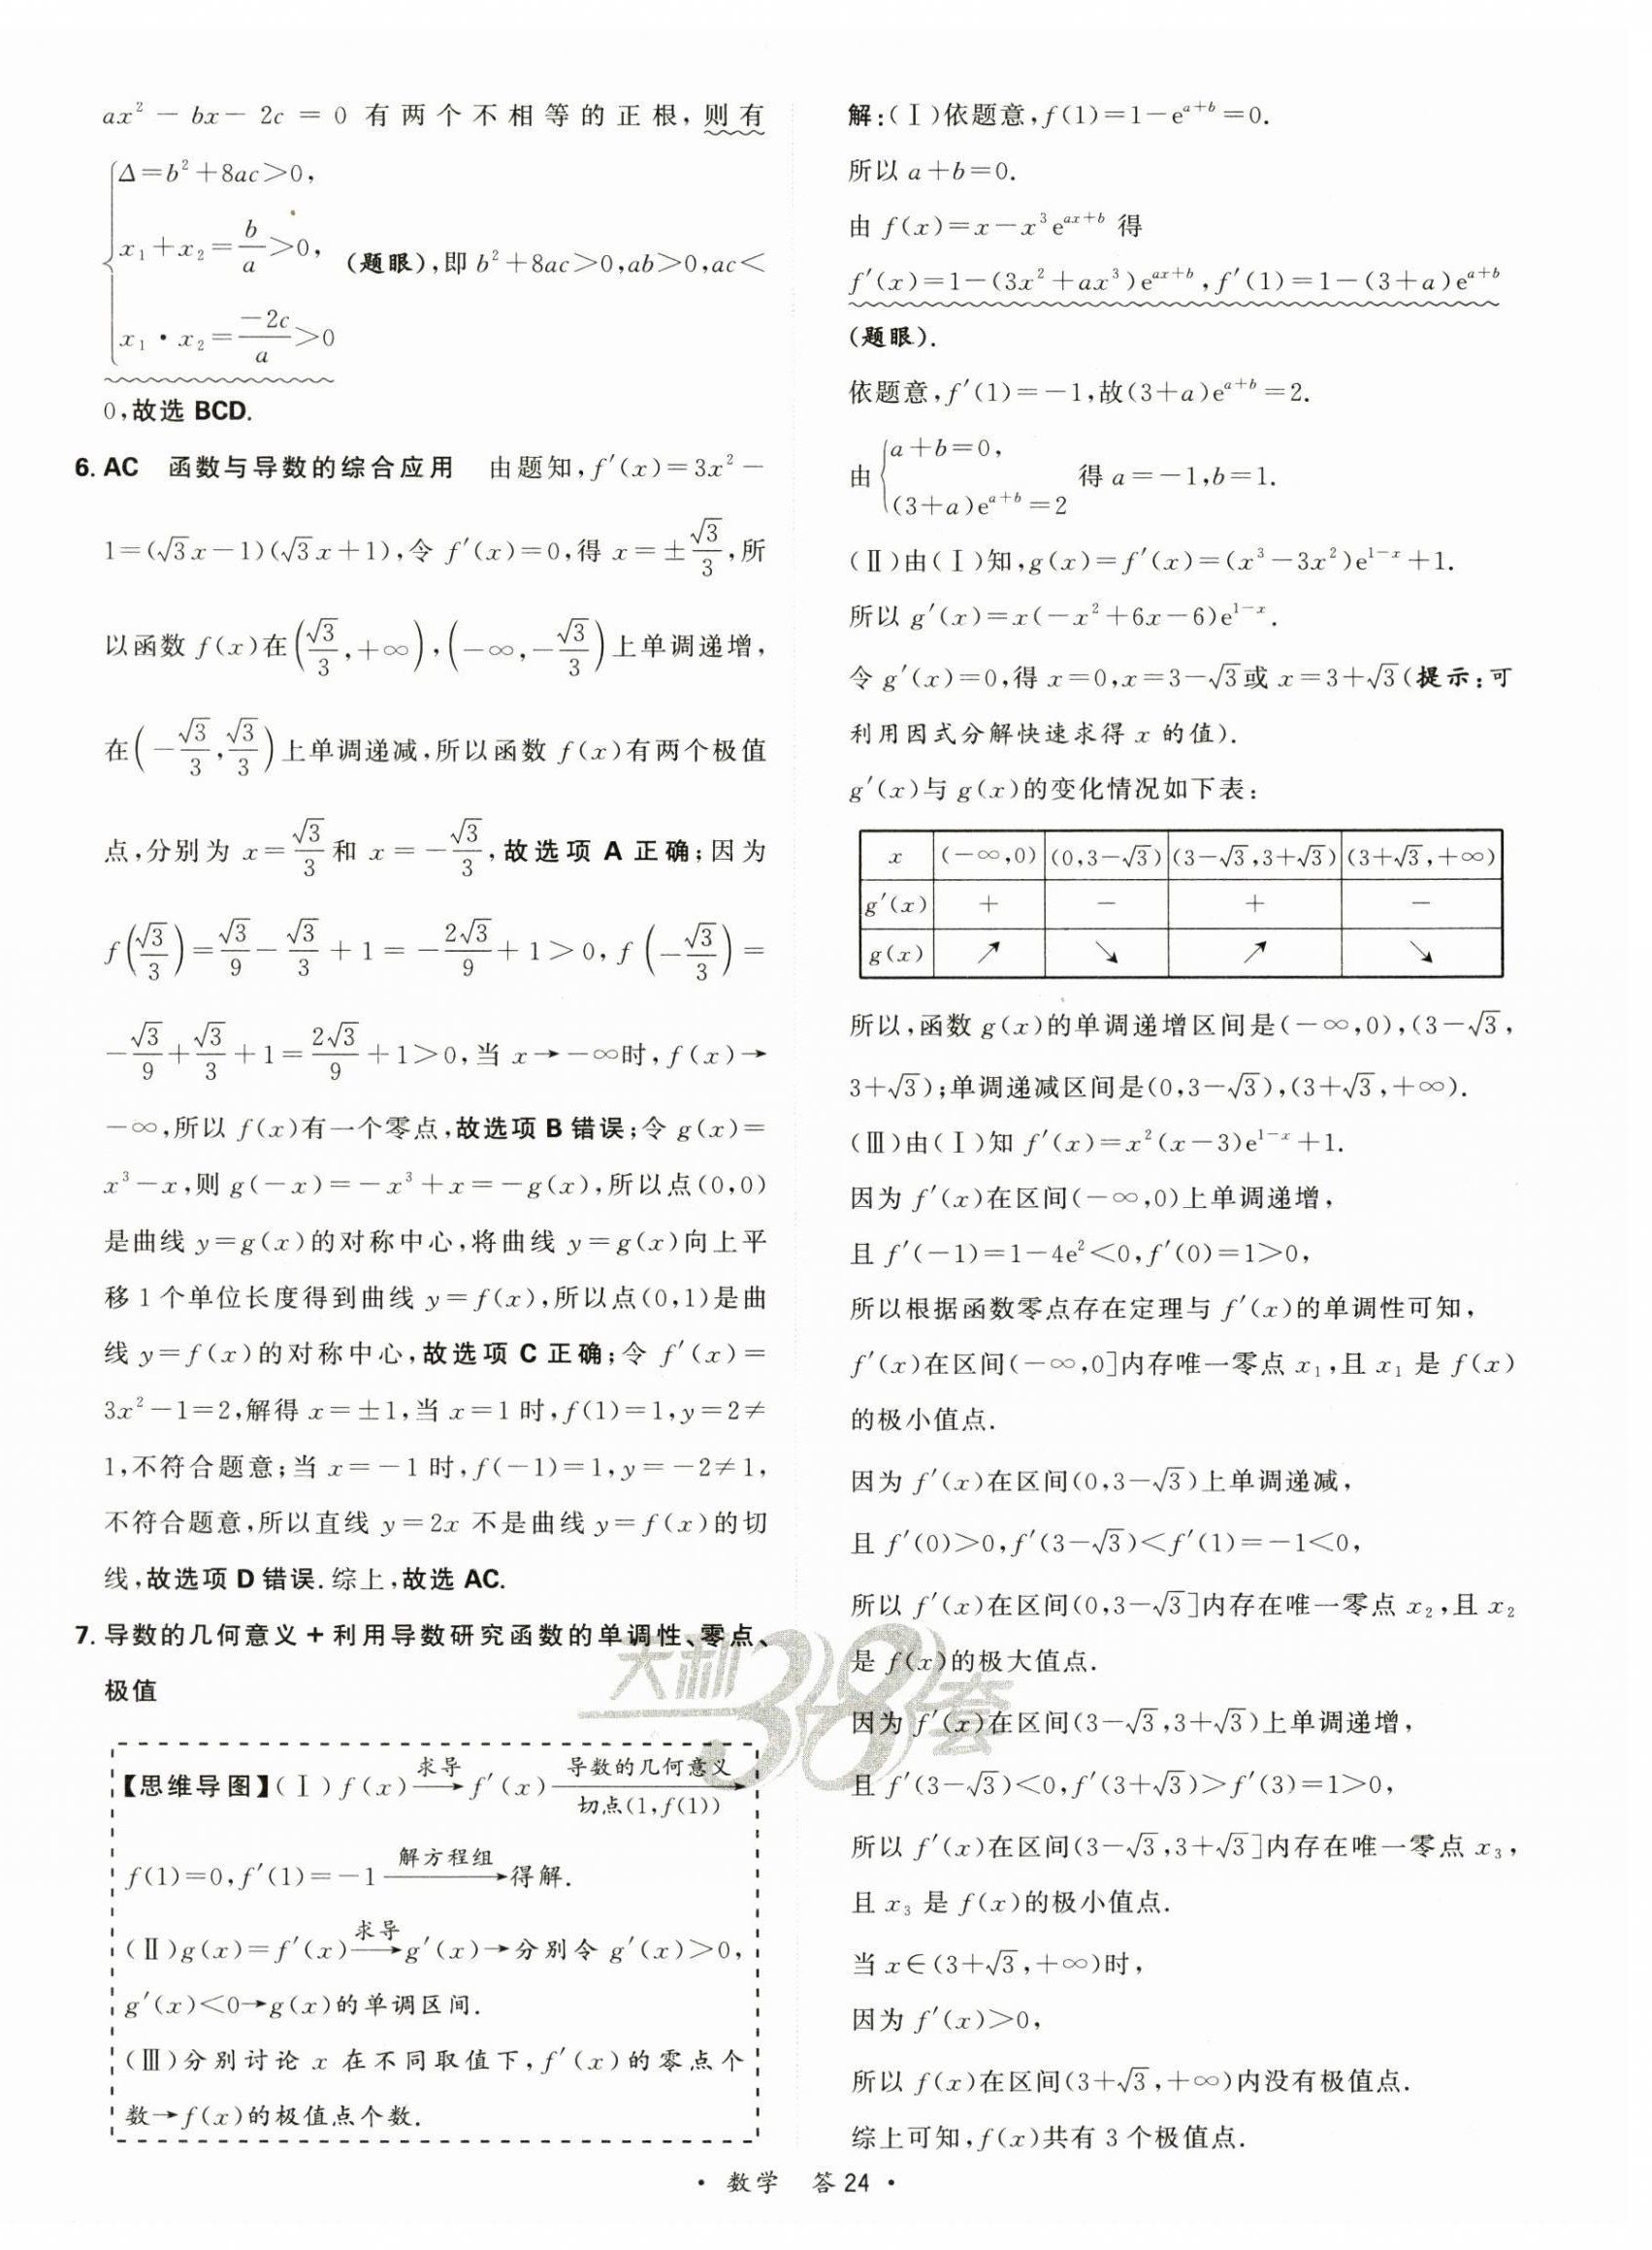 ax² − bx − 2c = 0 有两个不相等的正根,则有
Δ=b²+8ac>0,
x₁+x₂=b/a>0,
(题眼),即 b²+8ac>0,ab>0,ac<
x₁·x₂=−2c/a>0
0,故选 BCD.
6. AC 函数与导数的综合应用 由题知,f′(x)=3x²−
1=(√3x−1)(√3x+1),令 f′(x)=0,得 x=±√3/3,所
以函数 f(x)在(√3/3,+∞),(−∞,−√3/3)上单调递增,
在(−√3/3,√3/3)上单调递减,所以函数 f(x)有两个极值
点,分别为 x=√3/3 和 x=−√3/3,故选项 A 正确;因为
f(√3/3)=√3/9−√3/3+1=−2√3/9+1>0,f(−√3/3)=
−√3/9+√3/3+1=2√3/9+1>0,当 x→−∞时,f(x)→
−∞,所以 f(x)有一个零点,故选项 B 错误;令 g(x)=
x³−x,则 g(−x)=−x³+x=−g(x),所以点(0,0)
是曲线 y=g(x)的对称中心,将曲线 y=g(x)向上平
移 1 个单位长度得到曲线 y=f(x),所以点(0,1)是曲
线 y=f(x)的对称中心,故选项 C 正确;令 f′(x)=
3x²−1=2,解得 x=±1,当 x=1 时,f(1)=1,y=2≠
1,不符合题意;当 x=−1 时,f(−1)=1,y=−2≠1,
不符合题意,所以直线 y=2x 不是曲线 y=f(x)的切
线,故选项 D 错误.综上,故选 AC.
7. 导数的几何意义+利用导数研究函数的单调性、零点、
极值
求导 导数的几何意义
【思维导图】(Ⅰ)f(x)→f′(x)→
切点(1,f(1))
解方程组
f(1)=0,f′(1)=−1→得解.
求导
(Ⅱ)g(x)=f′(x)→g′(x)→分别令 g′(x)>0,
g′(x)<0→g(x)的单调区间.
(Ⅲ)分别讨论 x 在不同取值下,f′(x)的零点个
数→f(x)的极值点个数.
解:(Ⅰ)依题意,f(1)=1−e^(a+b)=0.
所以 a+b=0.
由 f(x)=x−x³e^(ax+b) 得
f′(x)=1−(3x²+ax³)e^(ax+b),f′(1)=1−(3+a)e^(a+b)
(题眼).
依题意,f′(1)=−1,故(3+a)e^(a+b)=2.
a+b=0,
由 得 a=−1,b=1.
(3+a)e^(a+b)=2
(Ⅱ)由(Ⅰ)知,g(x)=f′(x)=(x³−3x²)e^(1−x)+1.
所以 g′(x)=x(−x²+6x−6)e^(1−x).
令 g′(x)=0,得 x=0,x=3−√3或 x=3+√3(提示:可
利用因式分解快速求得 x 的值).
g′(x)与 g(x)的变化情况如下表:
x (−∞,0) (0,3−√3) (3−√3,3+√3) (3+√3,+∞)
g′(x) + − + −
g(x) ↗ ↘ ↗ ↘
所以,函数 g(x)的单调递增区间是(−∞,0),(3−√3,
3+√3);单调递减区间是(0,3−√3),(3+√3,+∞).
(Ⅲ)由(Ⅰ)知 f′(x)=x²(x−3)e^(1−x)+1.
因为 f′(x)在区间(−∞,0)上单调递增,
且 f′(−1)=1−4e²<0,f′(0)=1>0,
所以根据函数零点存在定理与 f′(x)的单调性可知,
f′(x)在区间(−∞,0]内存唯一零点 x₁,且 x₁ 是 f(x)
的极小值点.
因为 f′(x)在区间(0,3−√3)上单调递减,
且 f′(0)>0,f′(3−√3)<f′(1)=−1<0,
所以 f′(x)在区间(0,3−√3]内存在唯一零点 x₂,且 x₂
是 f(x)的极大值点.
因为 f′(x)在区间(3−√3,3+√3)上单调递增,
且 f′(3−√3)<0,f′(3+√3)>f′(3)=1>0,
所以 f′(x)在区间(3−√3,3+√3]内存在唯一零点 x₃,
且 x₃ 是 f(x)的极小值点.
当 x∈(3+√3,+∞)时,
因为 f′(x)>0,
所以 f(x)在区间(3+√3,+∞)内没有极值点.
综上可知,f(x)共有 3 个极值点.
天利38套
· 数学 答24 ·